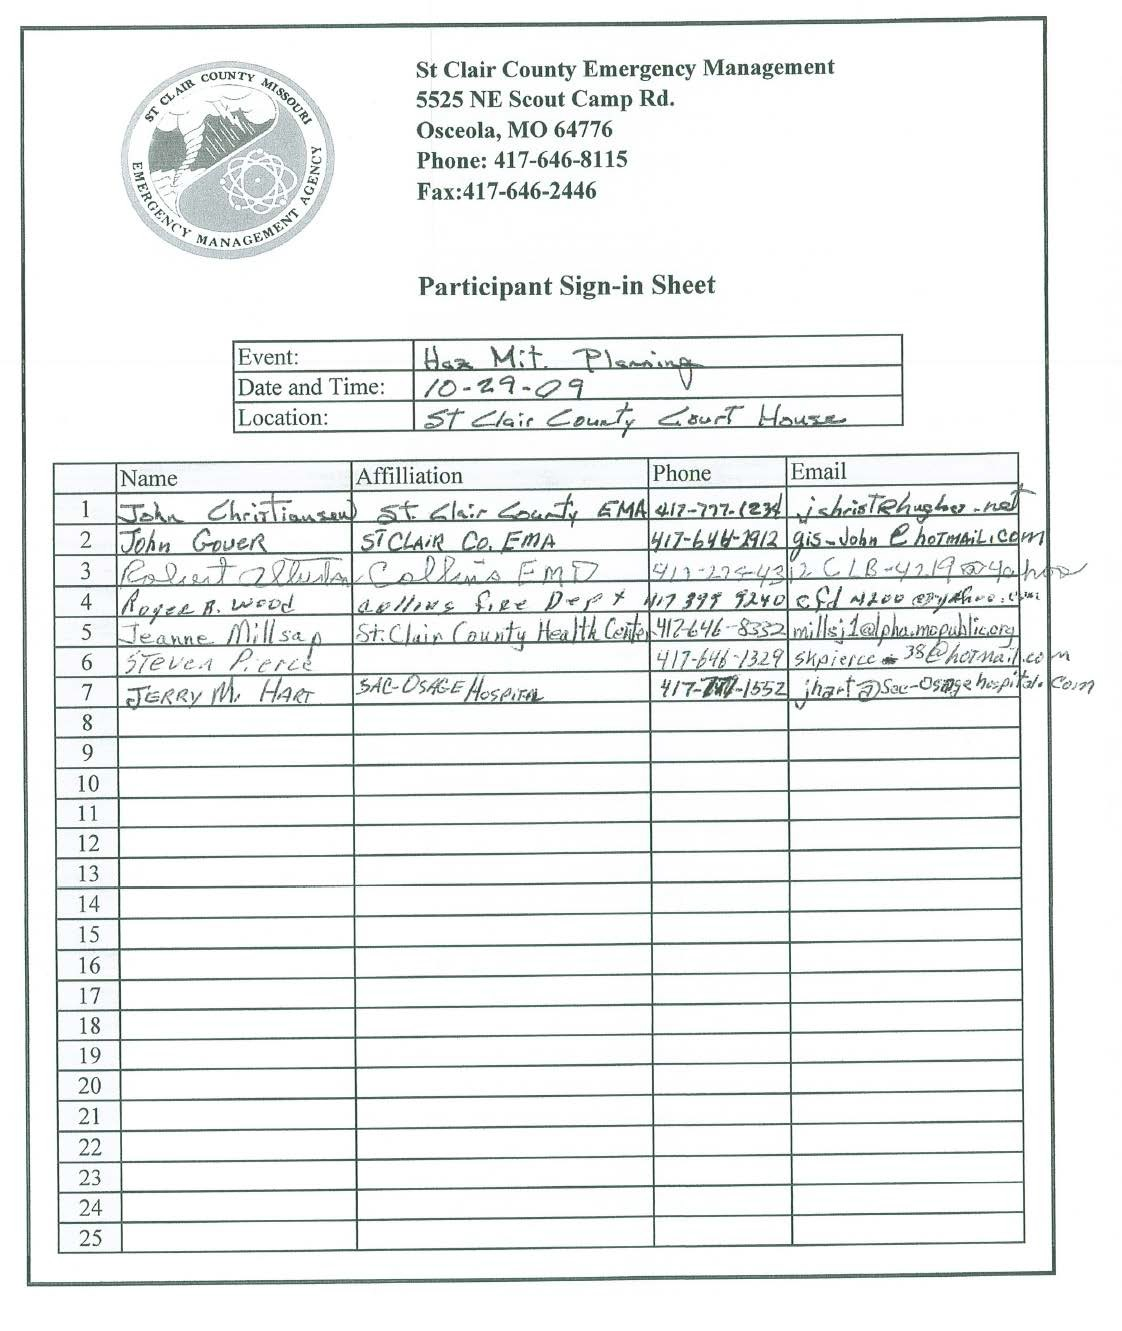 ST CLAIR COUNTY MISSOURI
EMERGENCY MANAGEMENT AGENCY
St Clair County Emergency Management
5525 NE Scout Camp Rd.
Osceola, MO 64776
Phone: 417-646-8115
Fax:417-646-2446
Participant Sign-in Sheet
Event: Haz Mit. Planning
Date and Time: 10-29-09
Location: St Clair County Court House
Name Affilliation Phone Email
1 John Christiansen St. Clair County EMA 417-777-1234 jchrist@hughes.net
2 John Gover ST CLAIR CO. EMA 417-646-2912 gis-John@hotmail.com
3 Robert Collins EMD CLB-4219@yahoo
4 Roger B. Wood Collins Fire Dept 417 399 9240 cfd4200@yahoo.com
5 Jeanne Millsap St. Clair County Health Center 417-646-8332 millsj1@lpha.mopublic.org
6 Steven Pierce 417-646-1329 skpierce 38@hotmail.com
7 JERRY M. HART SAC-OSAGE HOSPITAL jhart@Sac-Osagehospital.com
8
9
10
11
12
13
14
15
16
17
18
19
20
21
22
23
24
25